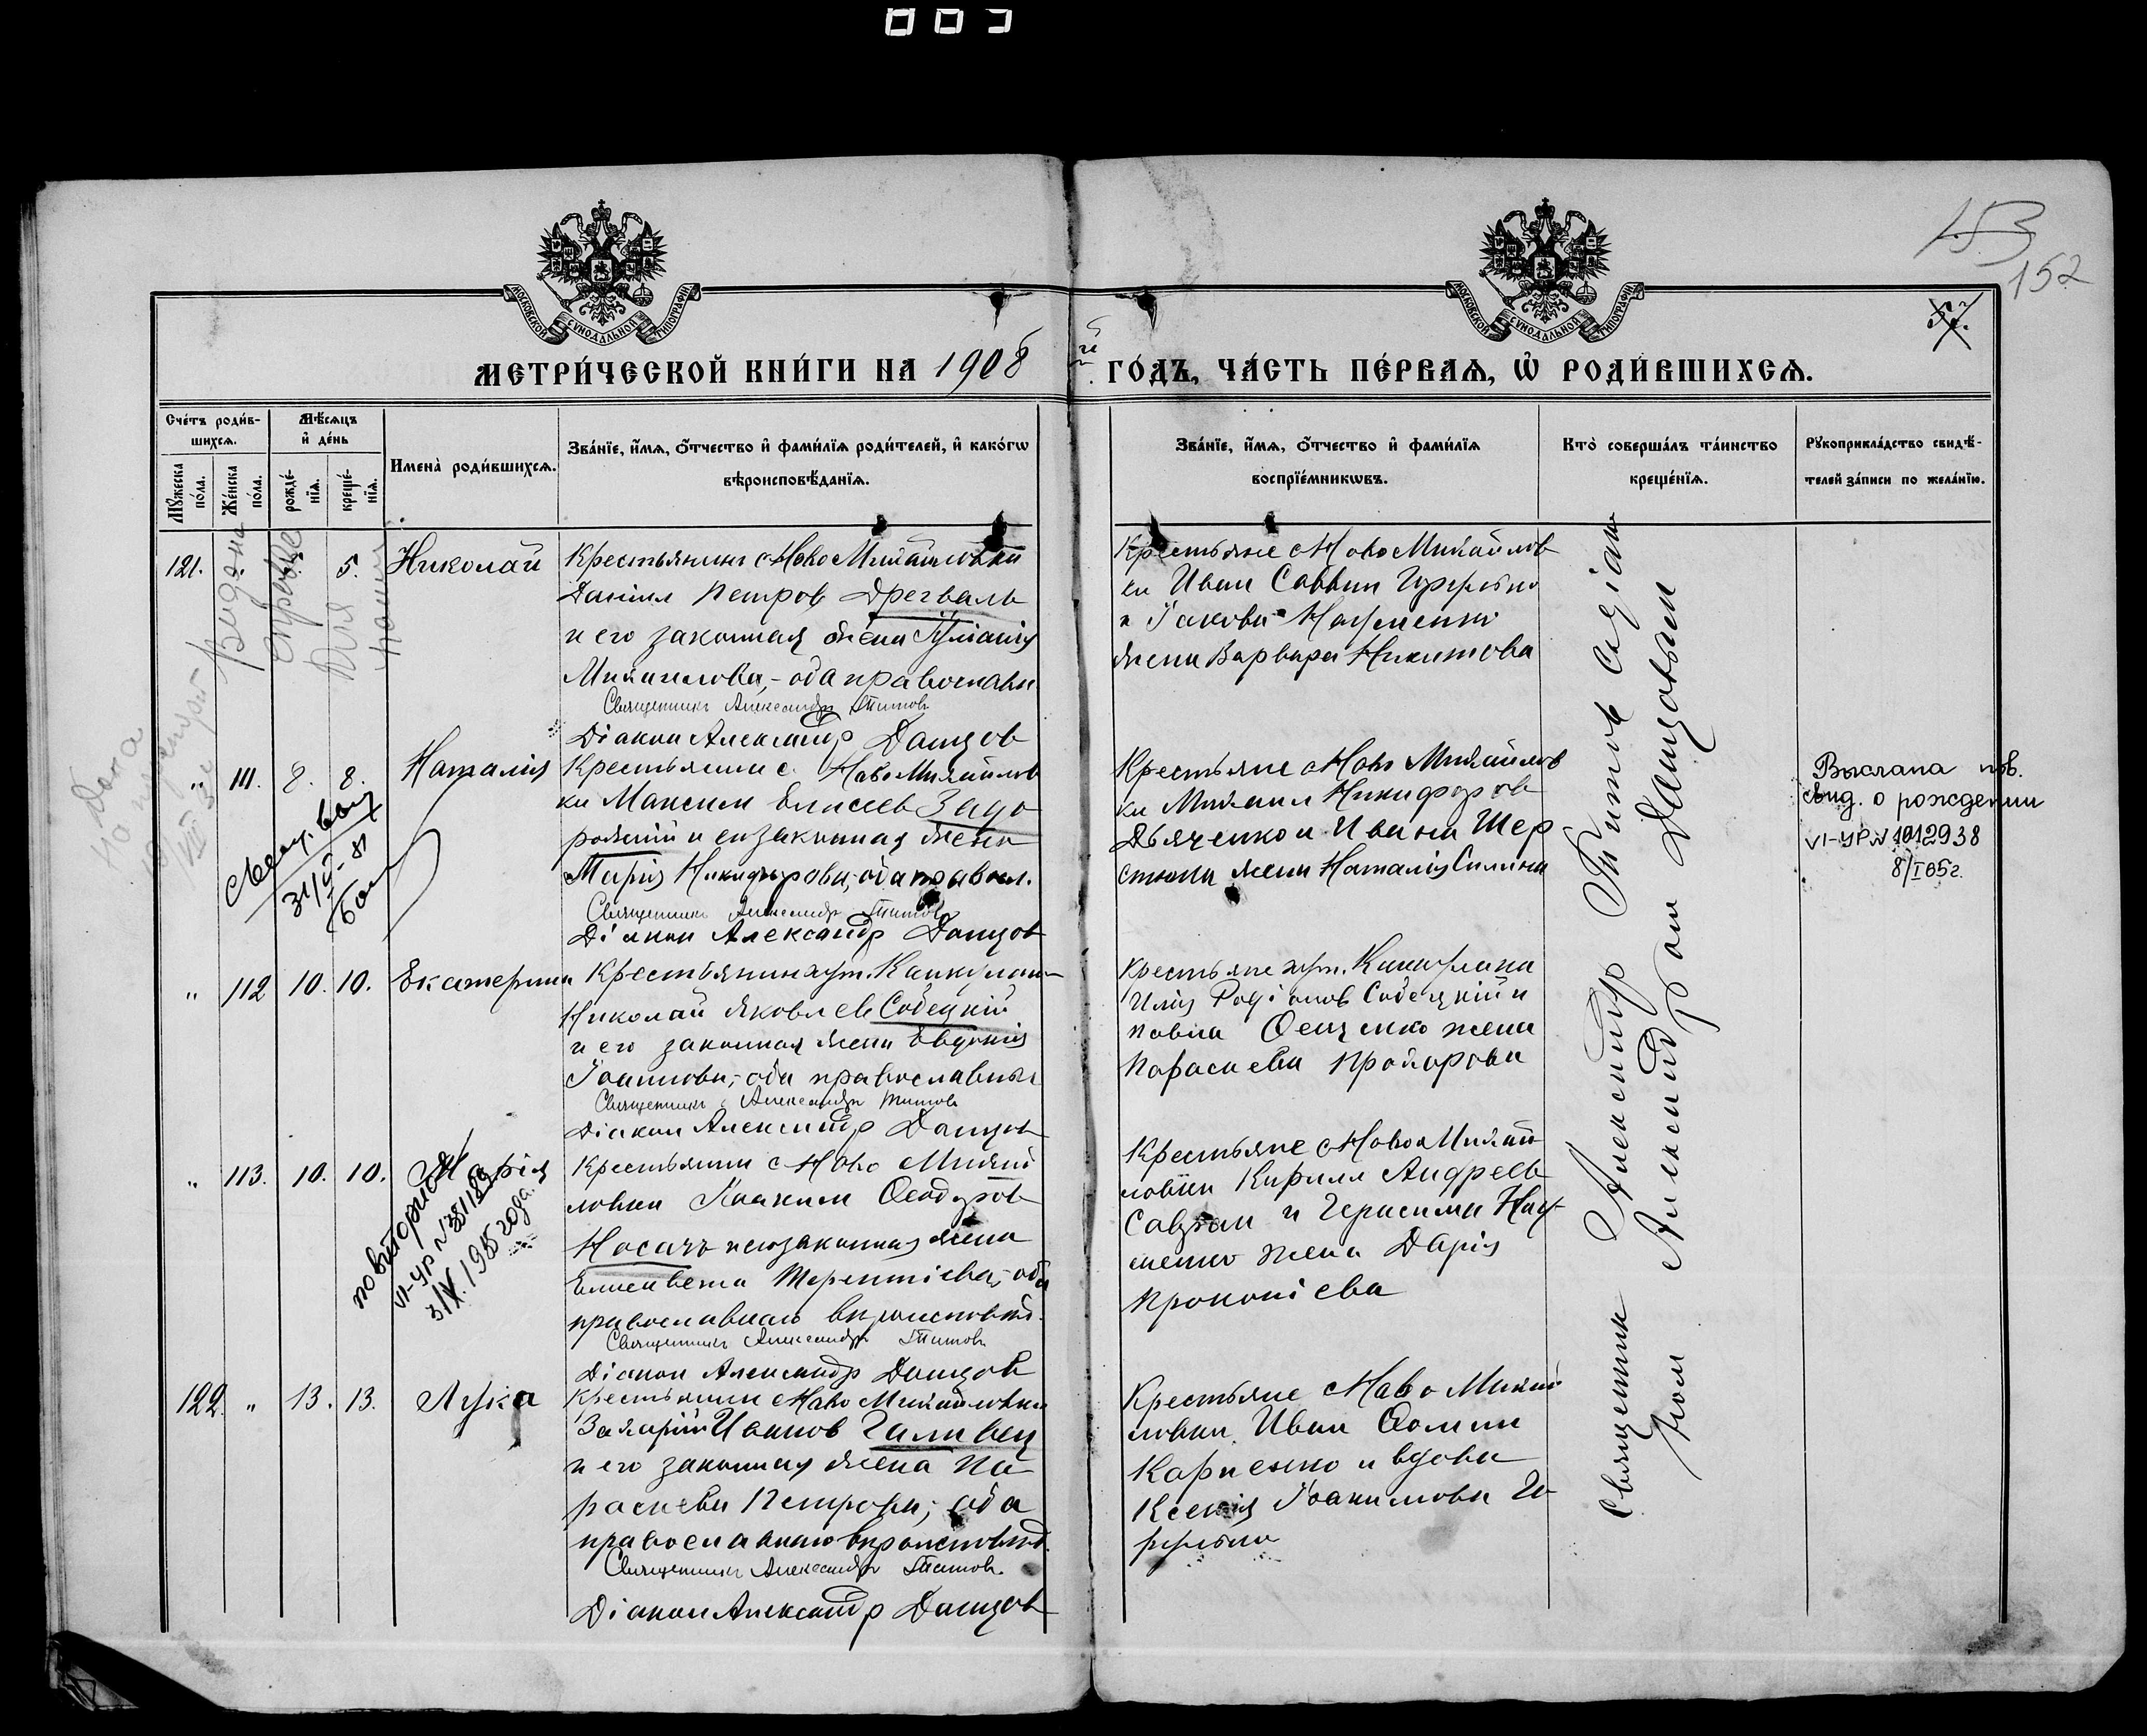 МОСКОВСКОЙ СѴНОДАЛЬНОЙ ТИПОГРАФІИ
МОСКОВСКОЙ СѴНОДАЛЬНОЙ ТИПОГРАФІИ
153
152
57.
МЕТРИ́ЧЕСКОЙ КНИ́ГИ НА 1908 й ГО́ДЪ, ЧА́СТЬ ПЕ́РВАЯ, Ѡ РОДИ́ВШИХСЯ.
Сче́тъ роди́в-
шихся.
Мѣ́сяцъ
и де́нь
Мꙋ́жеска по́ла.
Же́нска по́ла.
рожде́-
нїя.
креще́-
нїя.
Имена̀ роди́вшихся.
Зва́нїе, и́мя, о́тчество и фами́лїя роди́телей, и како́гѡ
вѣроисповѣ́данїя.
Зва́нїе, и́мя, о́тчество и фами́лїя
воспрїе́мникѡвъ.
Кто̀ соверша́лъ та́инство
креще́нїя.
Рꙋкоприкла́дство свидѣ́-
телей за́писи по жела́нїю.
121. 5. Николай
Крестьянинъ с Ново Михайловки
Даніил Петров Дрегваль
и его законная жена
Михаилова, - оба православн.
Священникъ Александръ Титовъ
Діакон Александр Данцов
Крестьяне с Ново Михайлов
ки Иван Саввин
и Іакова Науменко
жена Варвара Никитова
выдана справка для
" 111. 8. 8. Наталія
Крестьянин с. Ново Михайлов
ки Максим Елисеев Запо
рожский и его законная жена
Марія Никифорова, оба правосл.
Священникъ Александръ Титовъ
Діакон Александр Данцов
Крестьяне с Ново Михайлов
ки Михаил Никифоров
Дьяченко и Ивана Шер
стюка жена Наталія Силина
Выслана пов.
свид. о рождении
VI-УР № 1012938
8/I 65г.
" 112 10. 10. Екатерина
Крестьянин хут.
Николай Яковлев Содецкій
и его законная жена Евдокія
Іоаннова, - оба православные
Священникъ Александръ Титовъ
Діакон Александр Данцов
Крестьяне хут.
Илія Родіонов Содецкій и
Павла жена
Параскева Прохорова
" 113. 10. 10. Марія
повиторно
VI-УР № 381189
3/IX. 1985 года.
Крестьянин с Ново Михай
ловки Іоаким Ѳеодоров
Носачъ и его законная жена
Елисавета Терентіева, - оба
православнаго вероисповед.
Священникъ Александръ Титовъ
Діакон Александр Данцов
Крестьяне с Ново Михай
ловки Кирилл Андреев
и Герасима Нау-
менко жена Дарія
Прокопіева
122. " 13. 13. Лука
Крестьянин с Ново Михайловки
Захарий Иоаннов
и его законная жена Па
раскева Петрова, оба
православнаго вероисповед.
Священникъ Александръ Титовъ.
Діакон Александр Данцов
Крестьяне с Ново Михай
ловки Иван Ѳомин
Карпенко и вдова
Ксенія Іоакимова
Священник Александр Титов с діакон
ном Александром Данцовым